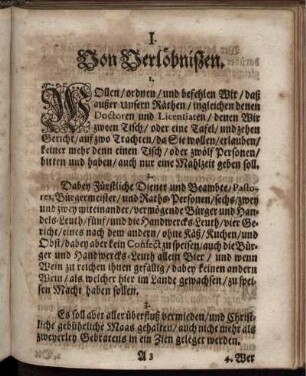 I.
Von Verlöbnißen.
1.
WOllen/ordnen/und befehlen Wir/daß
außer Unsern Räthen/ingleichen denen
Doctoren und Licentiaten/denen Wir
zween Tisch/oder eine Tafel/und zehen
Gericht/auf zwo Trachten/da Sie wollen/erlauben/
keiner mehr denn einen Tisch/oder zwölf Personen/
bitten und haben/auch nur eine Mahlzeit geben soll.
2.
Dabey Fürstliche Diener und Beambte/Pasto-
res, Bürgermeister/und Raths-Personen/sechs/zwey
und zwey miteinander/vermögende Bürger und Han-
dels-Leut/fünf/und die Handwercks-Leuth/vier Ge-
richt/eines nach dem andern/ohne Käß/Kuchen/und
Obst/dabey aber kein Confect zu speisen/auch die Bür-
ger und Handwercks-Leuth allein Bier/und wenn
Wein zu reichen ihnen gefällig/dabey keinen andern
Wein/als welcher hier im Lande gewachsen/zu spei-
sen Macht haben sollen.
3.
Es soll aber aller überfluß vermieden/und Christ-
liche gebührliche Maas gehalten/auch nicht mehr als
zweyerley Gebratens in ein Eßen geleget werden.
A 3 4. Wer